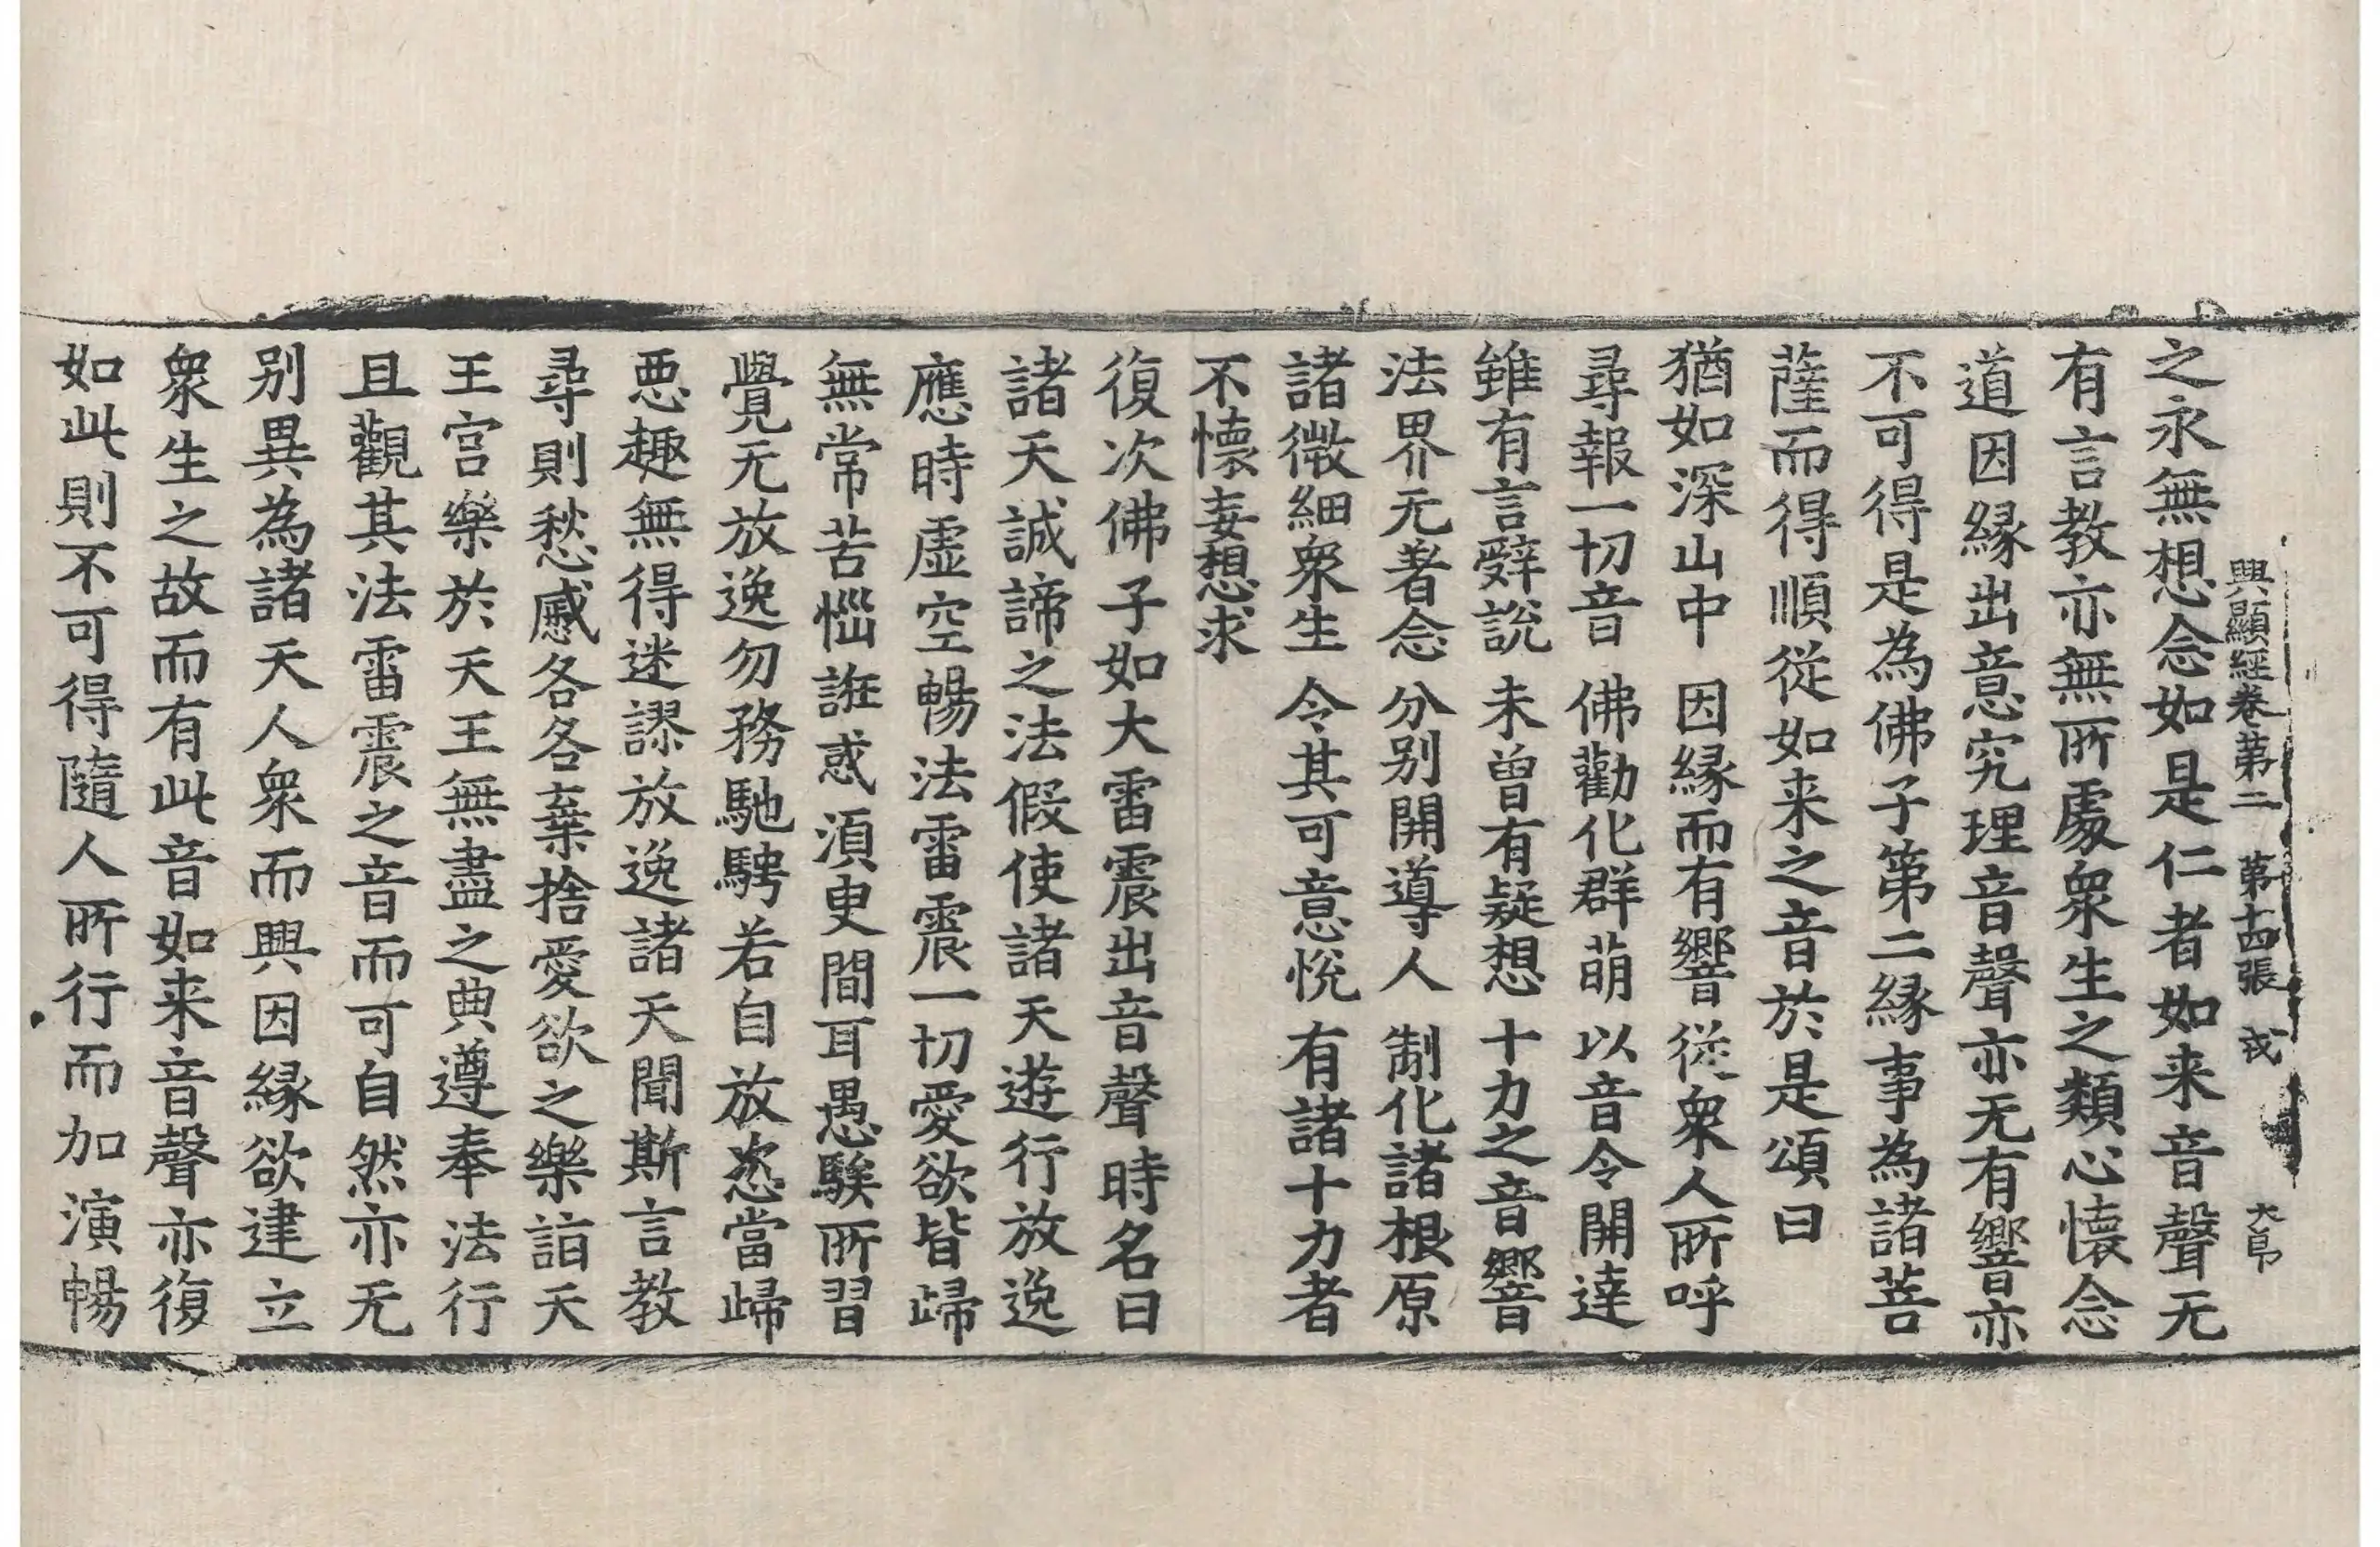 興顯經卷第二 第十四張 戎 大昂
之永無想念如是仁者如来音聲无
有言教亦無所處衆生之類心懷念
道因緣出意究理音聲亦无有響亦
不可得是為佛子第二緣事為諸菩
薩而得順從如来之音於是頌曰
猶如深山中 因緣而有響 從衆人所呼
尋報一切音 佛勸化群萌 以音令開達
雖有言辭說 未曾有疑想 十力之音響
法界无著念 分别開導人 制化諸根原
諸微細衆生 令其可意悅 有諸十力者
不懷妄想求
復次佛子如大雷震出音聲時名曰
諸天誠諦之法假使諸天遊行放逸
應時虛空暢法雷震一切愛欲皆歸
無常苦惱誑惑須臾間耳愚騃所習
覺无放逸勿務馳騁若自放恣當歸
惡趣無得迷謬放逸諸天聞斯言教
尋則愁慼各各棄捨愛欲之樂詣天
王宫樂於天王無盡之典遵奉法行
且觀其法雷震之音而可自然亦无
别異為諸天人衆而興因緣欲建立
衆生之故而有此音如来音聲亦復
如此則不可得隨人所行而加演暢